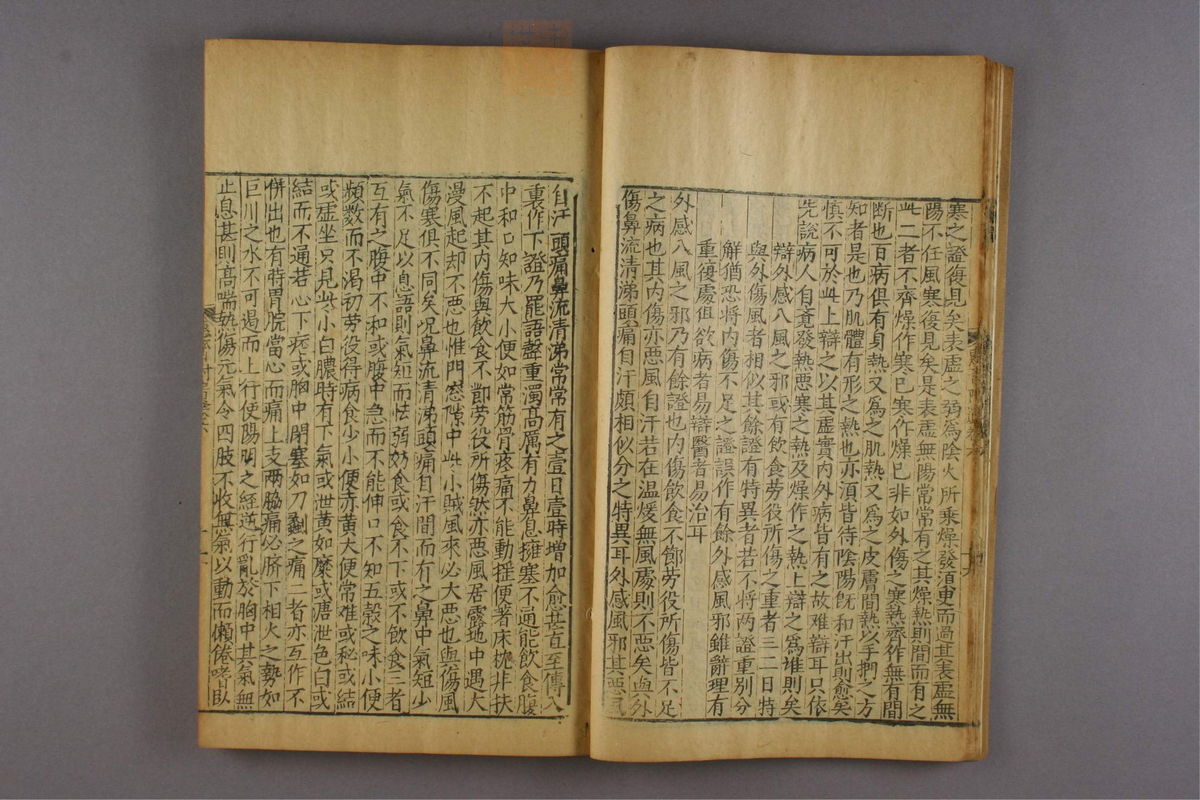 寒之證復見矣表虛之弱為陰火所乘燥發須臾而過其表虛無
陽不任風寒復見矣是表虛無陽常常有之其燥熱則間而有之
此二者不齊燥作寒已寒作燥已非如外傷之寒熱齊作無有間
斷也百病俱有身熱又為之肌熱又為之皮膚間熱以手捫之方
知者是也乃肌體有形之熱也亦須皆待陰陽既和汗出則愈矣
慎不可於此上辯之以其虛實內外病皆有之故难辯耳只依
先說病人自竟發熱悪寒之熱及燥作之熱上辯之為准則矣
辯外感八風之邪或有飲食劳役所傷之重者三二日特
與外傷風者相似其餘證有特異者若不将两證重別分
解猶恐将內傷不足之證誤作有餘外感風邪雖辭理有
重復處但欲病者易辯醫者易治耳
外感八風之邪乃有餘證也內傷飲食不節劳役所傷皆不足
之病也其內傷亦悪風自汗若在温煖無風處則不悪矣與外
傷鼻流清涕頭痛自汗頗相似分之特異耳外感風邪其悪風
自汗頭痛鼻流清涕常常有之壹日壹時増加愈甚直至傳入
裏作下證乃罷語聲重濁高厲有力鼻息擁塞不通能飲食腹
中和口知味大小便如常筋骨疼痛不能動揺便著床枕非扶
不起其內傷與飲食不節劳役所傷然亦悪風居露地中遇大
漫風起却不悪也惟門窓隙中此小賊風來必大悪也與傷風
傷寒俱不同矣况鼻流清涕頭痛自汗間而有之鼻中氣短少
氣不足以息語則氣短而怯弱妨食或食不下或不飲食三者
互有之腹中不和或腹中急而不能伸口不知五穀之味小便
頻數而不渴初劳役得病食少小便赤黃大便常难或秘或結
或虛坐只見些小白膿時有下氣或泄黃如糜或溏泄色白或
結而不通若心下痞或胸中閉塞如刀劙之痛二者亦互作不
併出也有時胃脘當心而痛上支两脇痛必脐下相火之勢如
巨川之水不可遏而上行使陽明之經逆行亂於胸中其氣無
止息甚則高喘熱傷元氣令四肢不收無氣以動而懶倦嗜臥